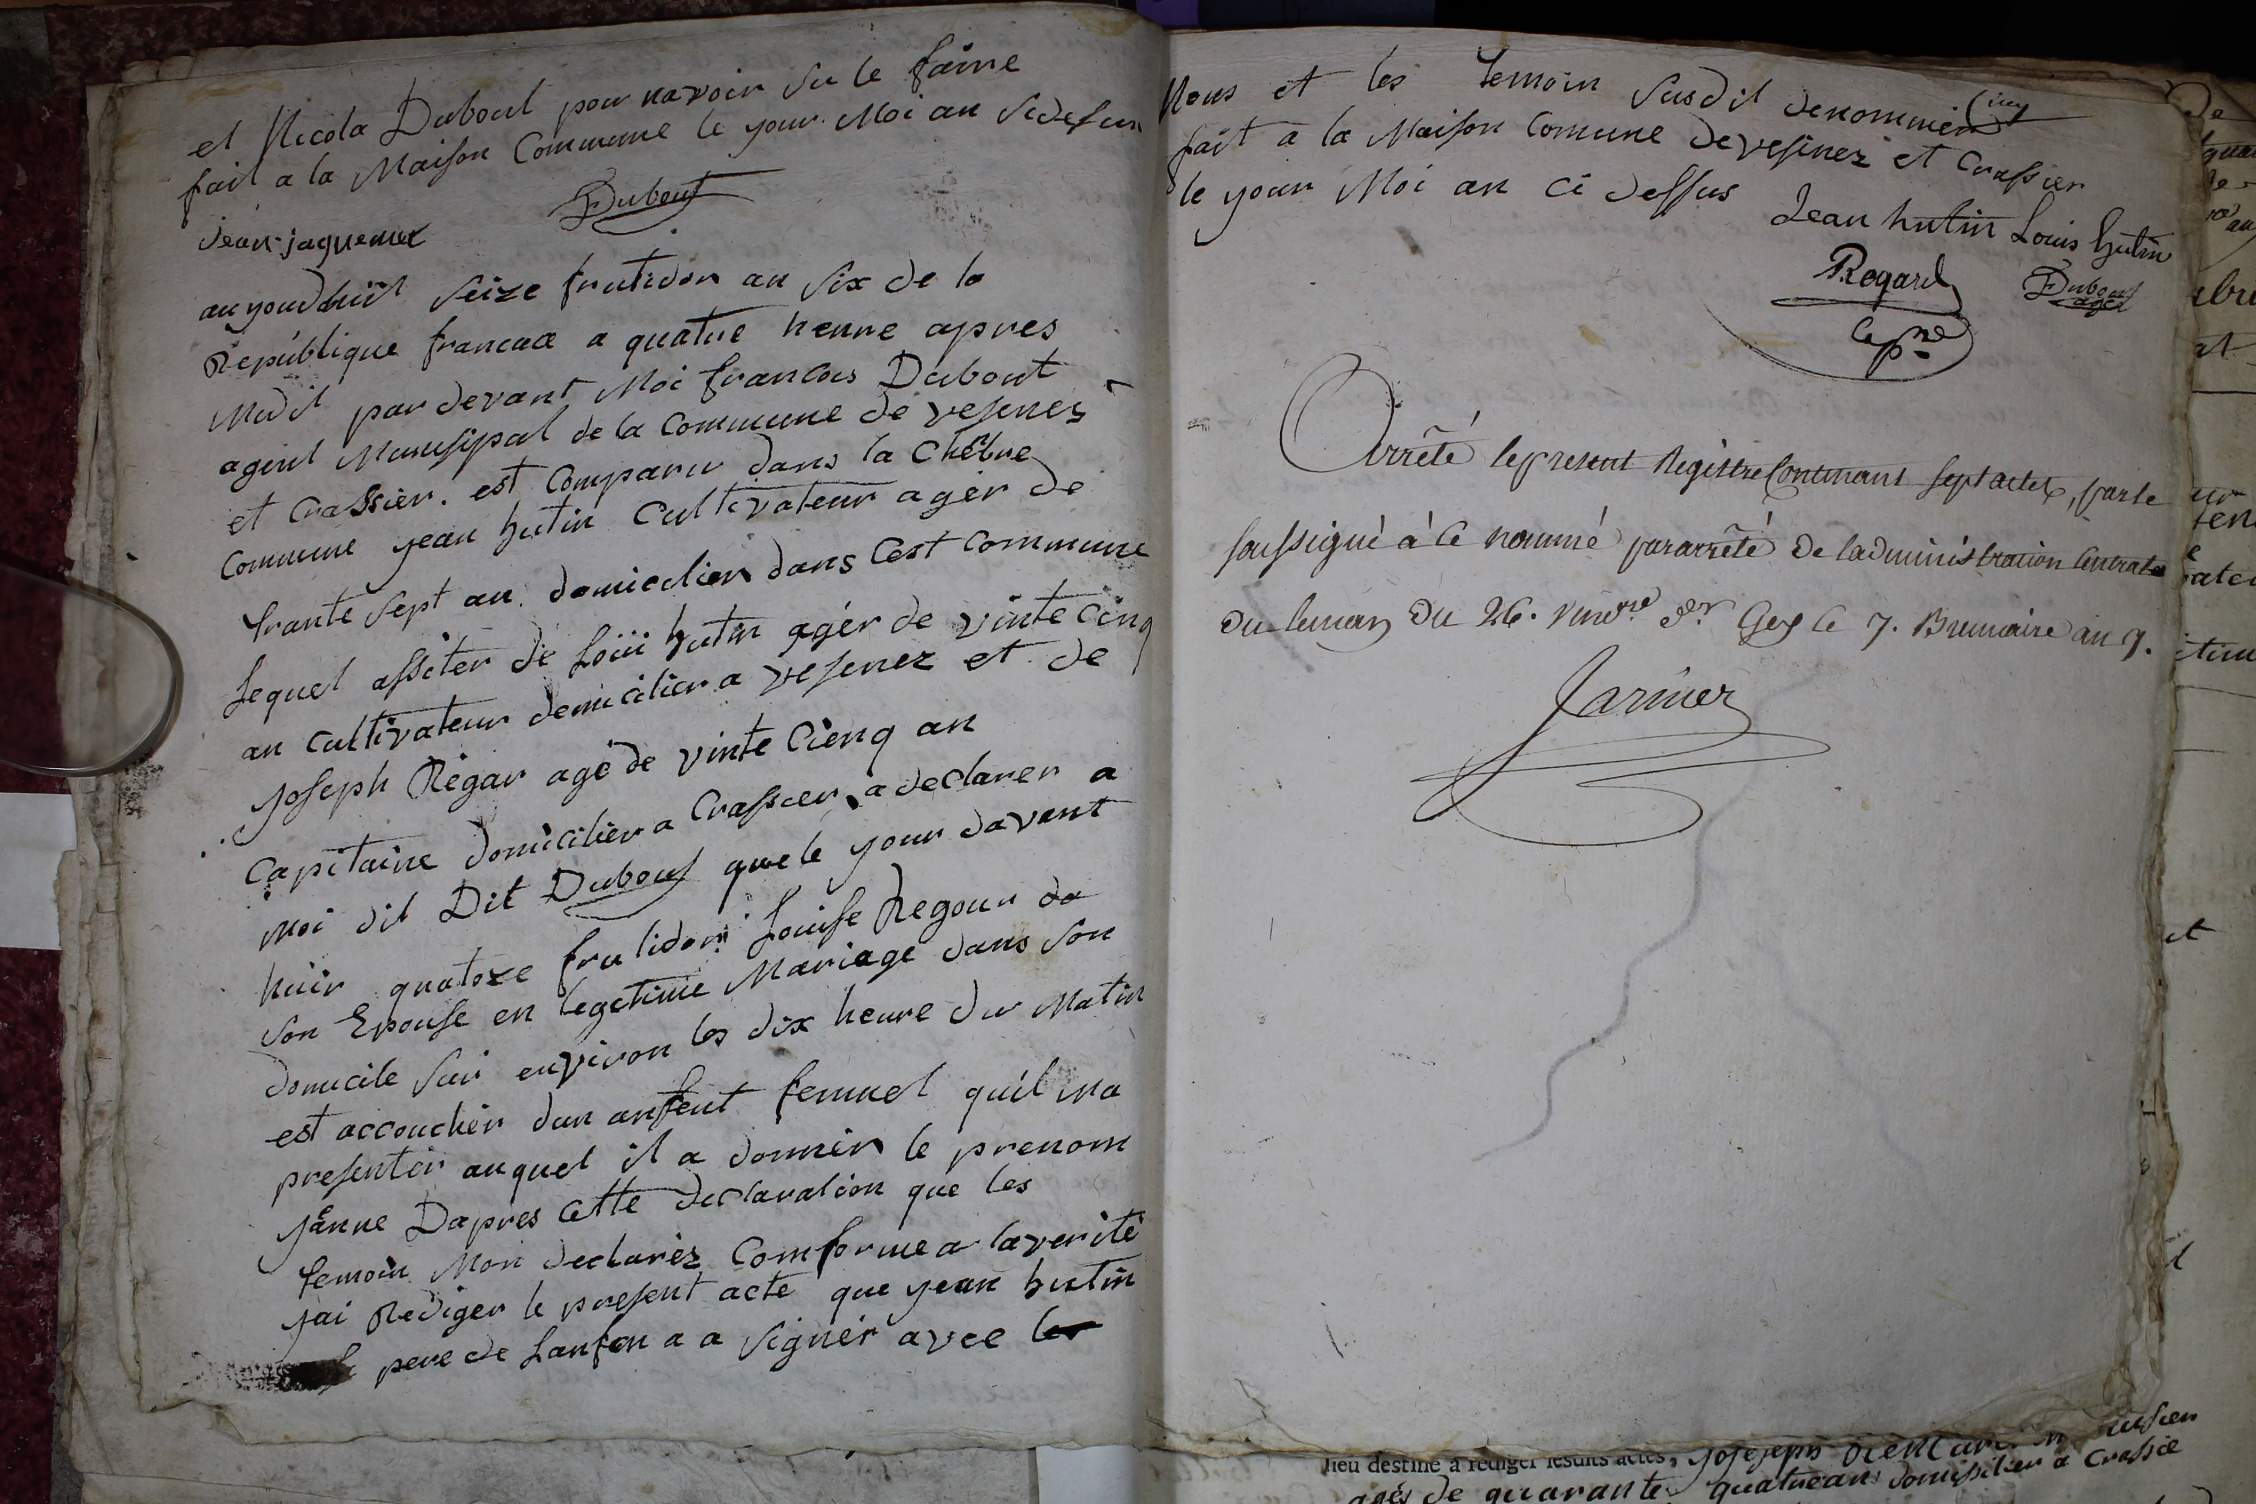 et Nicola Dubout pour navoir su le faire
fait a la Maison Commune le your Moi an sidesun
Dubout
Jean jaquemet
auyourdhuit seize frutidor an six de la
République francaie a quatre heure apres
Midit par devant Moi francois Dubout
agent Munisipal de la Commune de vesenes
et Crassier. est Comparu dans la Chêbre
Commune yean hutin Cultivateur ager de
trante sept an domicilier dans Cest Commune
Lequel assiter de Loüi hutin agér de vinte Cinq
an Cultivateur demicilier a vesenez et de
yoseph Régar agé de vinte Cienq an
Capitaine domicilier a Crassier a declarer a
Moi dit Dit Dubout que le your davant
huir quatoze frutidor Louise Regour da
son Epouse en legetime Mariage dans son
domicile sur environ les dix heure du Matin
est accoucher dun anfent femuel quil ma
presenter auquel il a donner le prenom
yânne Dapres Cette declaration que les
temoin Mon declarez Comforme a laverité
yai Rediger le present acte que yean hutin
pere de Lanfen a a signér avec
Nous et les temoin susdit denommér
fait a la Maison Comune de vesinez et Crassier
le your Moi an Ci dessus
Jean hutin Louis hutin
Regard
Dubout
agen
Cap.ne
Arrêté le present Registre Contenant sept actes, par le
soussigné à ce nommé par arrêté de ladministration Centrale
du leman du 26. vind.re d.er Gex le 7. Brumaire an 7.
Jarinier
et
lieu destiné à rédiger lesdits actes,
agés de quarante quatre an domissilier a Crassie